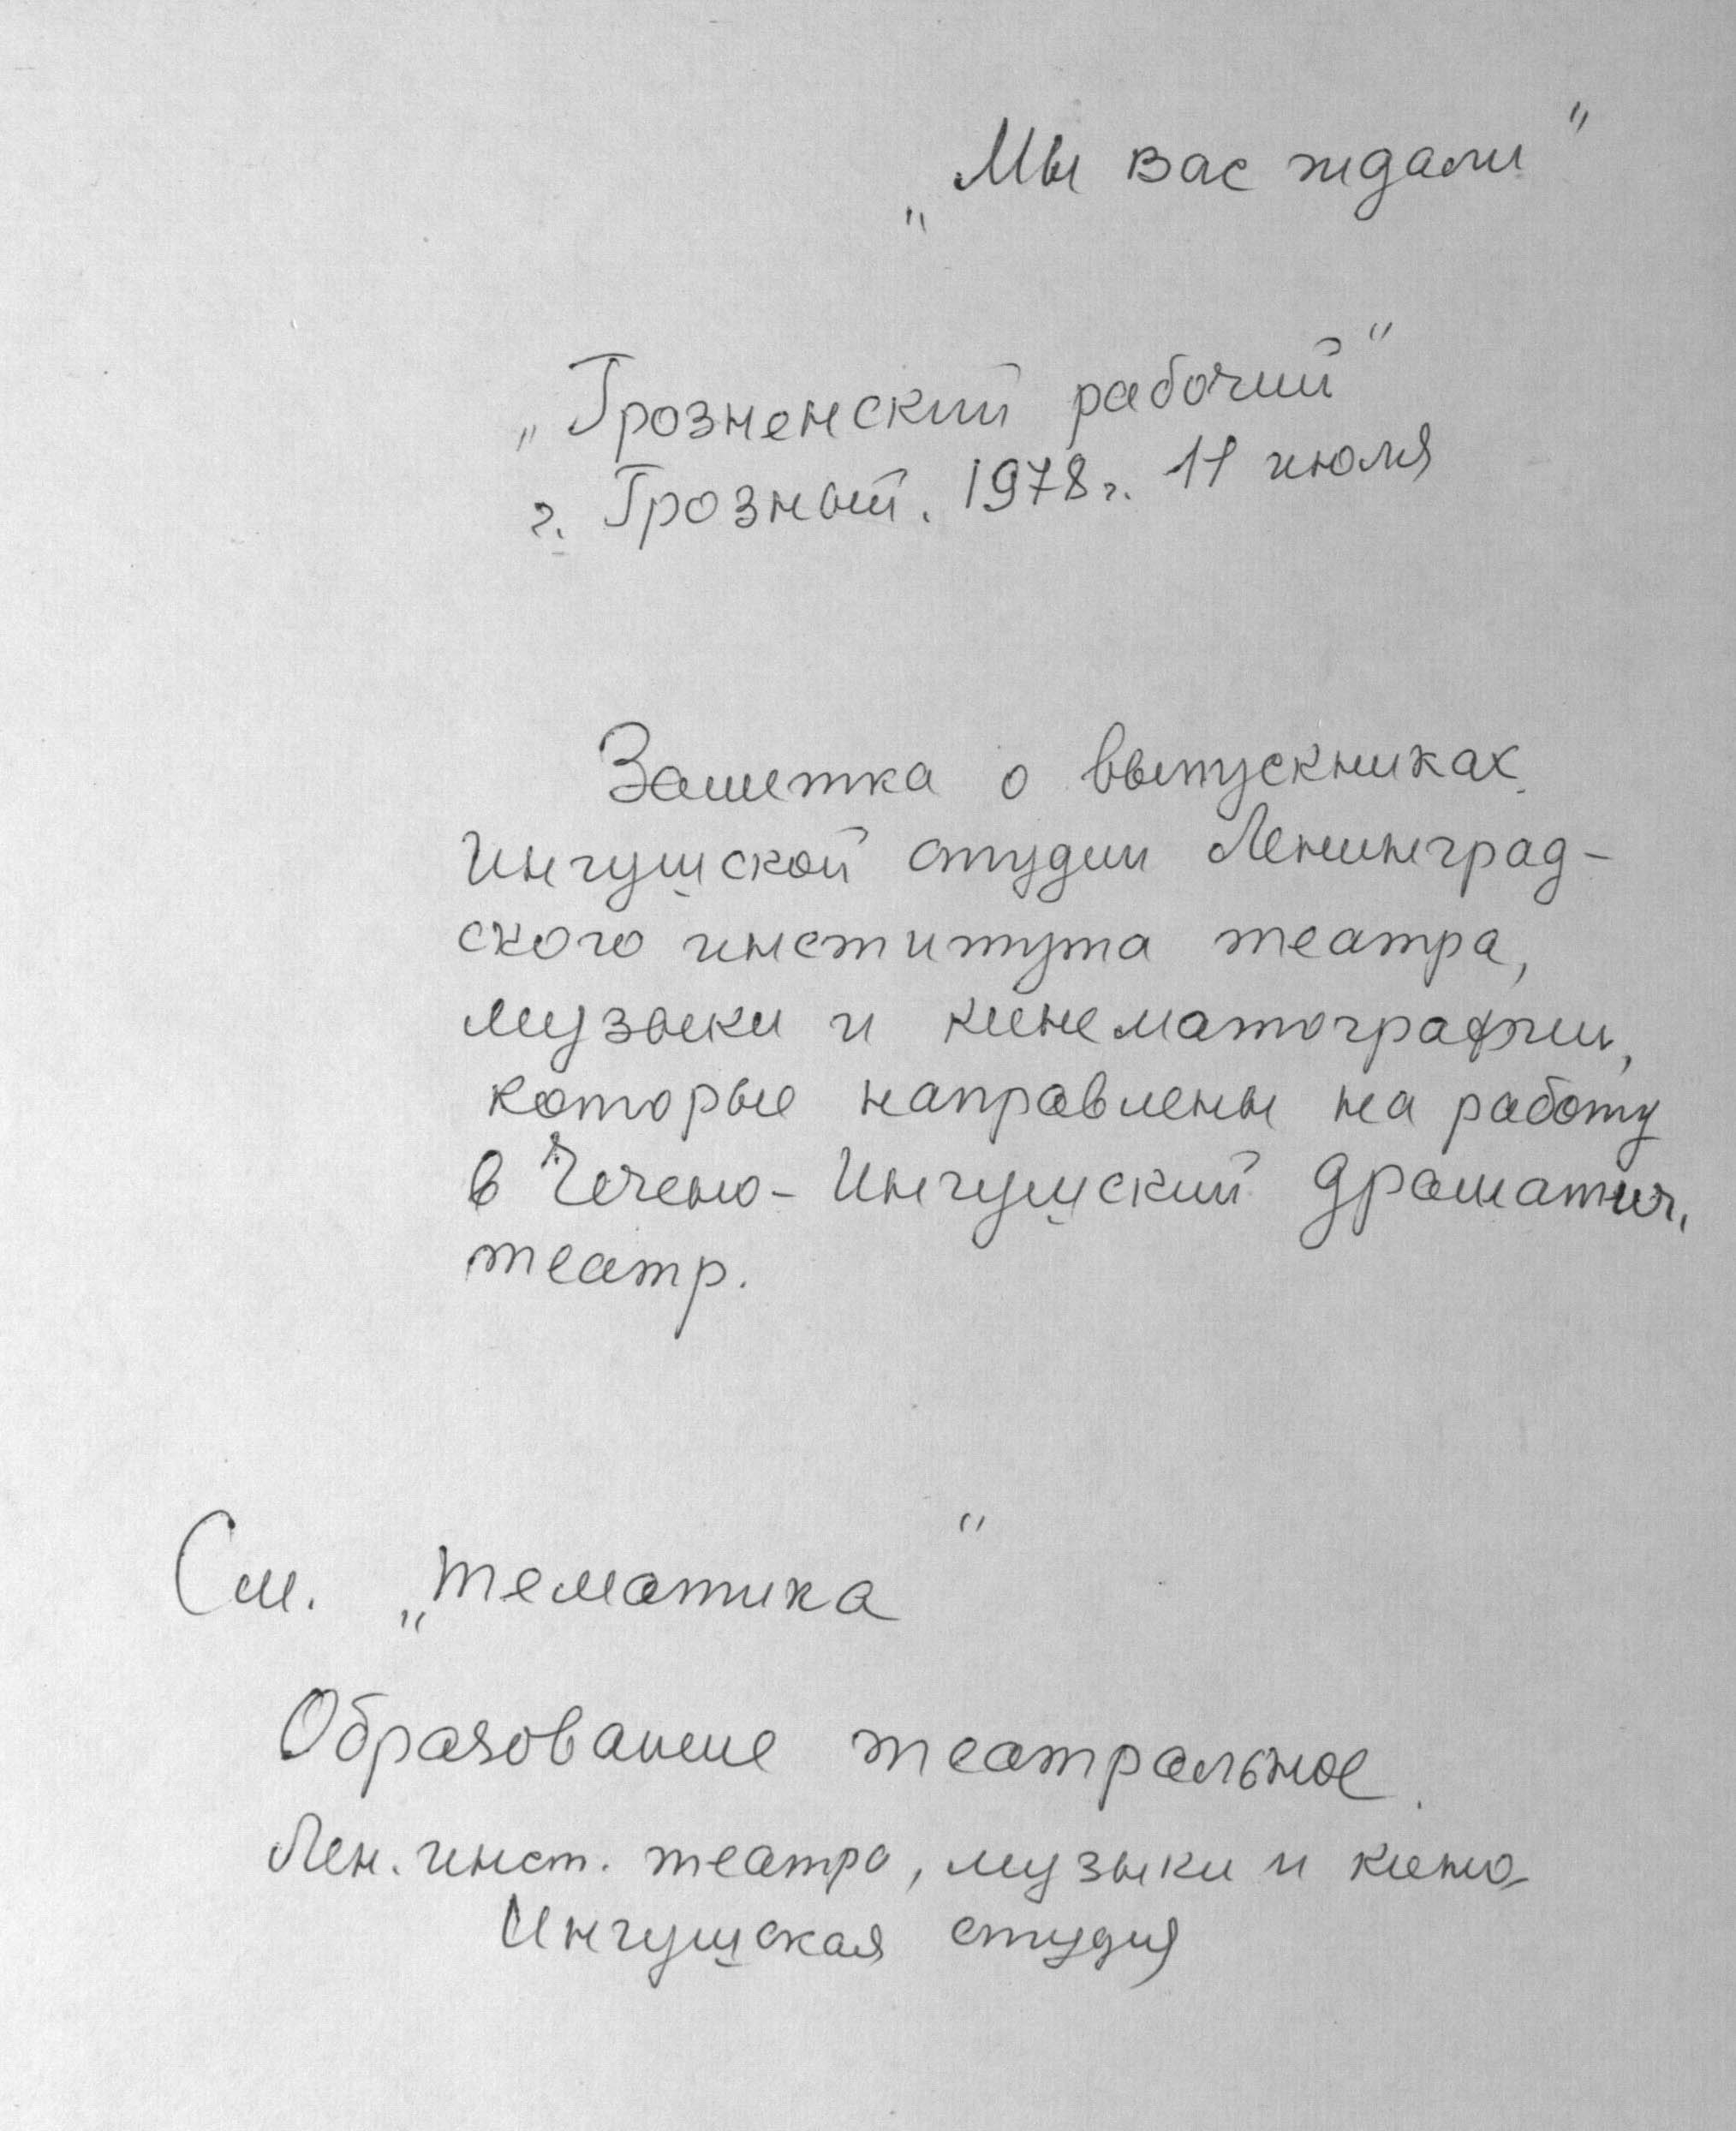 „Мы вас ждали"
„Грозненский рабочий"
г. Грозный. 1978г. 11 июля
Заметка о выпускниках
Ингушской студии Ленинград-
ского института театра,
музыки и кинематографии,
которые направлены на работу
в Чечено-Ингушский драматич.
театр.
См. „Тематика"
Образование театральное.
Лен. инст. театра, музыки и кино
Ингушская студия